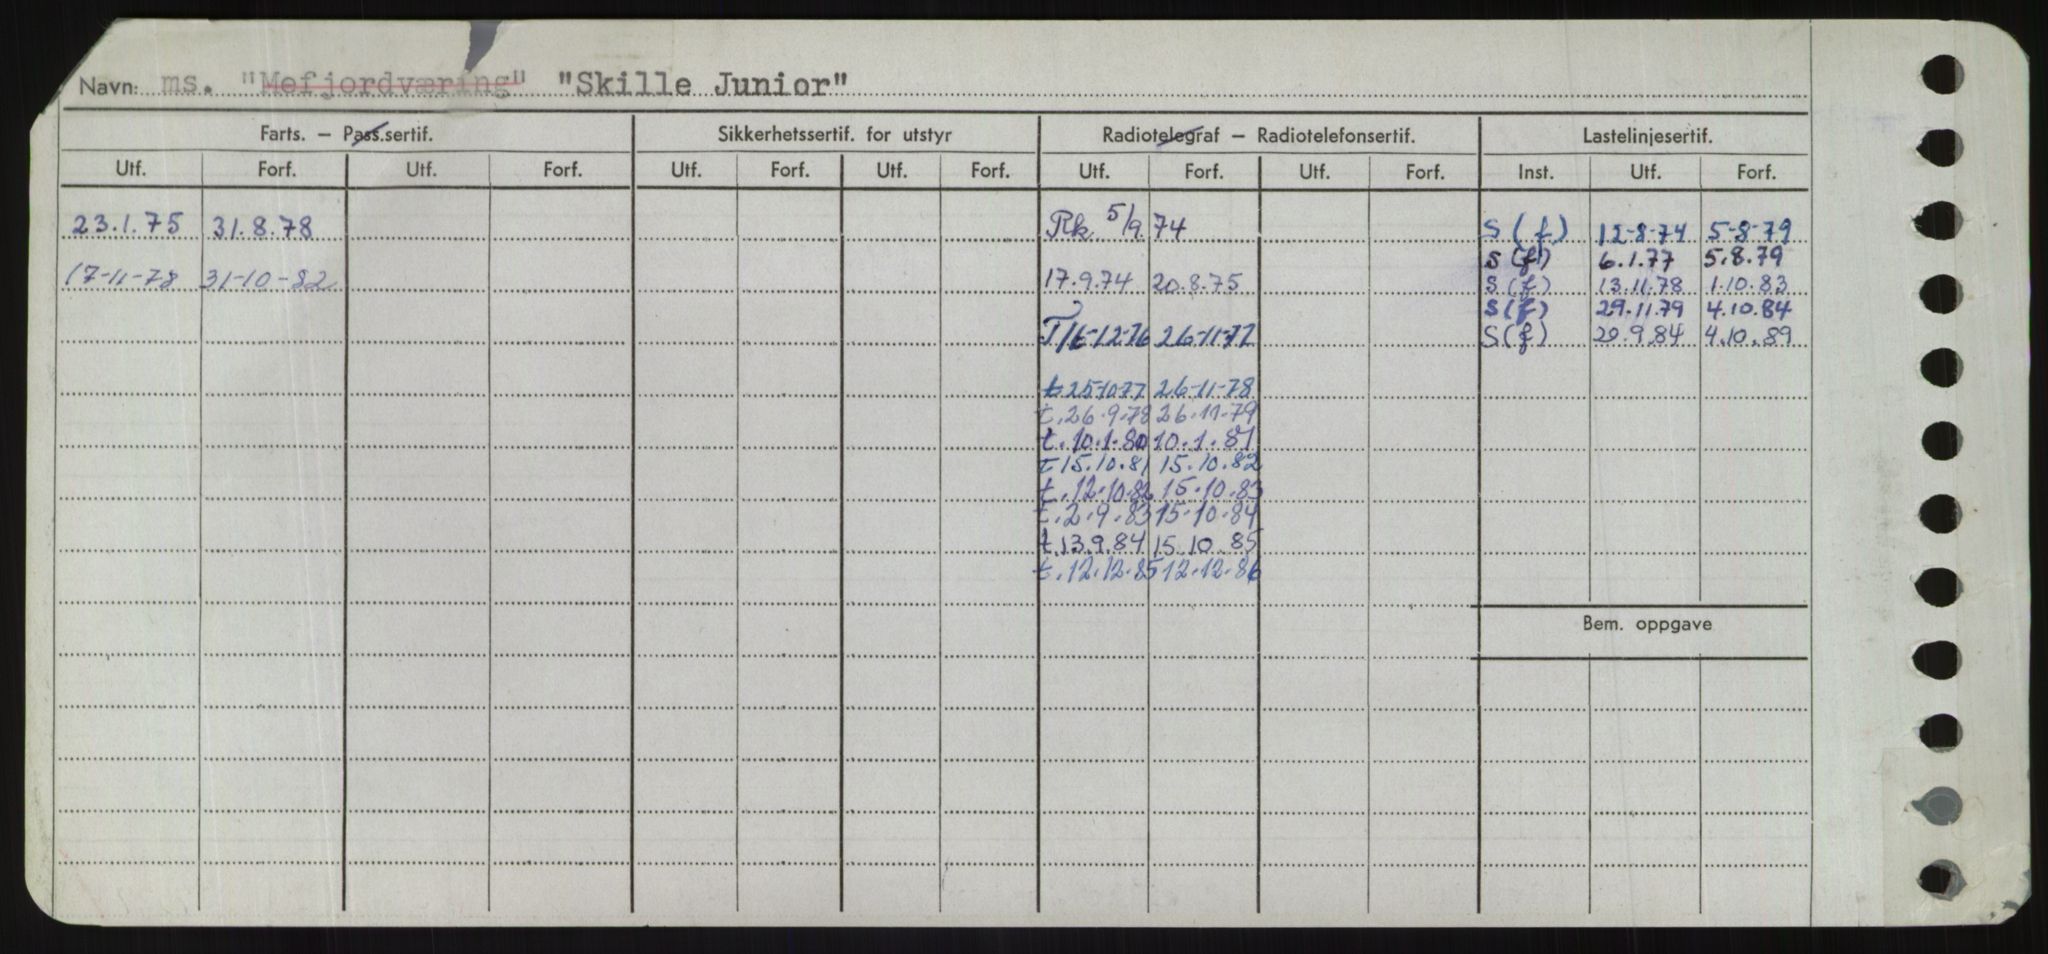 Navn: ms. "Mefjordværing" "Skille Junior"
Farts. — Pass.sertif. Sikkerhetssertif. for utstyr Radiotelegraf — Radiotelefonsertif. Lastelinjesertif.
Utf. Forf. Utf. Forf. Utf. Forf. Utf. Forf. Utf. Forf. Utf. Forf. Inst. Utf. Forf.
23.1.75 31.8.78 Rk 5/9 74 S (f) 12-8-74 5-8-79
S (f) 6.1.77 5.8.79
17-11-78 31-10-82 17.9.74 20.8.75 S (f) 13.11.78 1.10.83
S (f) 29.11.79 4.10.84
T/16-12-76 26-11-77 S (f) 20.9.84 4.10.89
t 25-10-77 26-11-78
t. 26.9.78 26.11.79
t. 10.1.80 10.1.81
t 15.10.81 15.10.82
t. 12.10.82 15.10.83
t. 2.9.83 15.10.84
t. 13.9.84 15.10.85
t. 12.12.85 12.12.86
Bem. oppgave